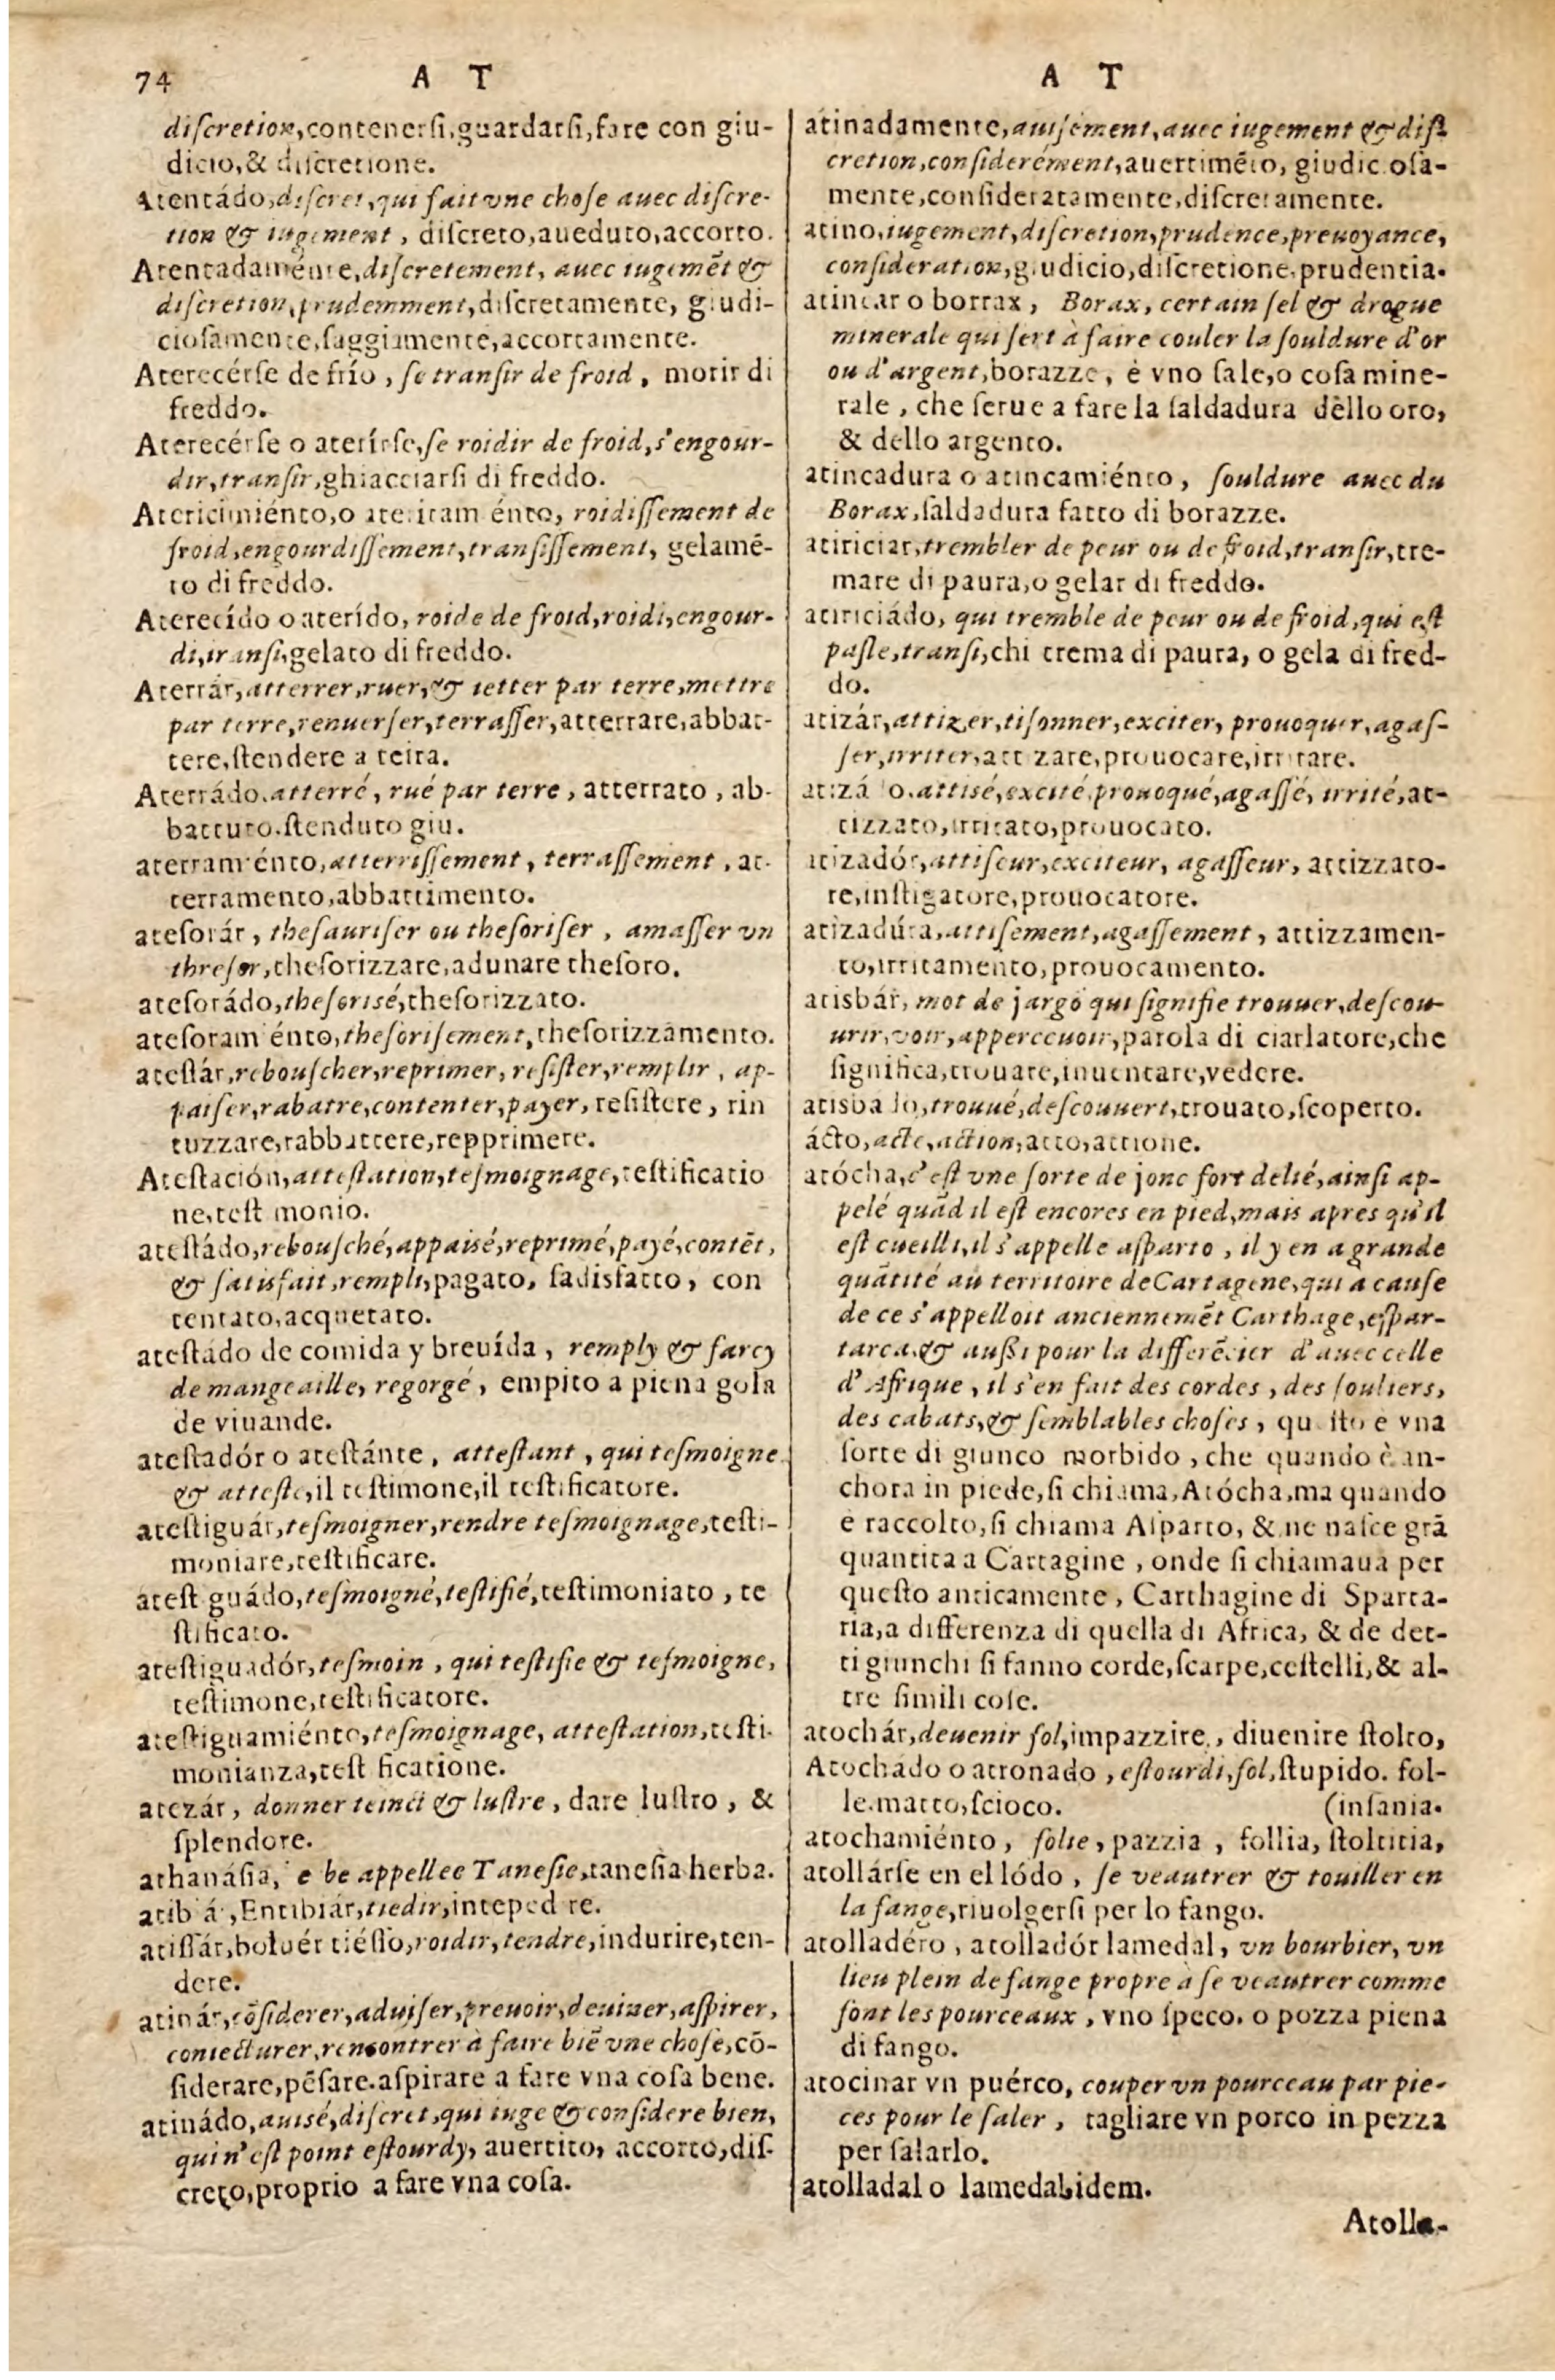 74 A T
A T
diſcretion, contenerſi, guardarſi, fare con giu-
dicio, & diſcretione.
Atentádo, diſcret, qui fait vne choſe auec diſcre-
tion & iugement, diſcreto, aueduto, accorto.
Atentadaménte, diſcretement, auec iugemẽt &
diſcretion, prudemment, diſcretamente, giudi-
cioſamente, ſaggiamente, accortamente.
Aterecérſe de frío, ſe tranſir de froid, morir di
freddo.
Aterecérſe o aterírſe, ſe roidir de froid, s'engour-
dir, tranſir, ghiacciarſi di freddo.
Atericimiénto, o ateritam énto, roidiſſement de
froid, engourdiſſement, tranſiſſement, gelamẽ-
to di freddo.
Aterecído o aterído, roide de froid, roidi, engour-
di, tranſi, gelato di freddo.
Aterrár, atterrer, ruer, & ietter par terre, mettre
par terre, renuerſer, terraſſer, atterrare, abbat-
tere, ſtendere a terra.
Aterrádo, atterré, rué par terre, atterrato, ab-
battuto. ſtenduto giu.
aterramiénto, atterriſſement, terraſſement, at-
terramento, abbattimento.
ateſorár, theſauriſer ou theſoriſer, amaſſer vn
threſor, theſorizzare, adunare theſoro.
ateſorádo, theſorisé, theſorizzato.
ateſoram énto, theſoriſement, theſorizzamento.
ateſtár, rebouſcher, reprimer, reſiſter, remplir, ap-
paiſer, rabatre, contenter, payer, reſiſtere, rin
tuzzare, rabbattere, repprimere.
Ateſtación, atteſtation, teſmoignage, teſtificatio
ne, teſt monio.
ateſtádo, rebouſché, appaisé, reprimé, payé, contẽt,
& ſatisfait, rempli, pagato, ſadisfatto, con
tentato, acquetato.
ateſtádo de comida y breuída, remply & farcy
de mangeaille, regorgé, empito a piena gola
de viuande.
ateſtadór o ateſtánte, atteſtant, qui teſmoigne
& atteſte, il teſtimone, il teſtificatore.
ateſtiguár, teſmoigner, rendre teſmoignage, teſti-
moniare, teſtificare.
ateſt guádo, teſmoigné, teſtifié, teſtimoniato, te
ſtificato.
ateſtiguadór, teſmoin, qui teſtifie & teſmoigne,
teſtimone, teſtificatore.
ateſtiguamiénto, teſmoignage, atteſtation, teſti-
monianza, teſt ficatione.
atezár, donner teinct & luſtre, dare luſtro, &
ſplendore.
athanáſia, e be appellee Taneſie, taneſia herba.
atib á, Entibiár, tiedir, inteped re.
atiſſár, boluér tiéſſo, roidir, tendre, indurire, ten-
dere.
atinár, cõſiderer, aduiſer, preuoir, deuiner, aſpirer,
coniecturer, rencontrer à faire biẽ vne choſe, cõ-
ſiderare, pẽſare. aſpirare a fare vna coſa bene.
atinádo, auisé, diſcret, qui iuge & conſidere bien,
qui n'eſt point eſtourdy, auertito, accorto, diſ-
creto, proprio a fare vna coſa.
atinadamente, auiſément, auec iugement & diſ-
cretion, conſiderément, auertimẽto, giudic oſa-
mente, conſideratamente, diſcretamente.
atino, iugement, diſcretion, prudence, preuoyance,
conſideration, giudicio, diſcretione, prudentia.
atincar o borrax, Borax, certain ſel & drogue
minerale qui ſert à faire couler la ſouldure d'or
ou d'argent, borazze, è vno ſale, o coſa mine-
rale, che ſerue a fare la ſaldadura dèllo oro,
& dello argento.
atincadura o atincamiénto, ſouldure auec du
Borax, ſaldadura fatto di borazze.
atiriciar, trembler de peur ou de froid, tranſir, tre-
mare di paura, o gelar di freddo.
atiriciádo, qui tremble de peur ou de froid, qui eſt
paſle, tranſi, chi trema di paura, o gela di fred-
do.
atizár, attizer, tiſonner, exciter, prouoquer, agaſ-
ſer, irriter, att zare, prouocare, irritare.
atizá o, attisé, excité, prouoqué, agaſſé, irrité, at-
tizzato, irritato, prouocato.
atizadór, attiſeur, exciteur, agaſſeur, attizzato-
re, inſtigatore, prouocatore.
atizadúra, attiſement, agaſſement, attizzamen-
to, irritamento, prouocamento.
atisbár, mot de jargõ qui ſignifie trouuer, deſcou-
urir, voir, apperceuoir, parola di ciarlatore, che
ſignifica, trouare, inuentare, vedere.
atisba lo, trouué, deſcouuert, trouato, ſcoperto.
ácto, acte, action, atto, attione.
atócha, c'eſt vne ſorte de jonc fort delié, ainſi ap-
pelé quãd il eſt encores en pied, mais apres qu'il
eſt cueilli, il s'appelle aſparto, il y en a grande
quãtité au territoire de Cartagene, qui à cauſe
de ce s'appelloit anciennemẽt Carthage, eſpar-
tarca, & auſſi pour la differẽcier d'auec celle
d'Afrique, il s'en fait des cordes, des ſouliers,
des cabats, & ſemblables choſes, qu ſto è vna
ſorte di giunco morbido, che quando è an-
chora in piede, ſi chiama, Atócha, ma quando
è raccolto, ſi chiama Aſparto, & ne naſce grã
quantita a Cartagine, onde ſi chiamaua per
queſto anticamente, Carthagine di Sparta-
ria, a differenza di quella di Africa, & de det-
ti giunchi ſi fanno corde, ſcarpe, ceſtelli, & al-
tre ſimili coſe.
atochár, deuenir fol, impazzire, diuenire ſtolto,
Atochádo o atronado, eſtourdi, fol, ſtupido. fol-
le. matto, ſcioco. (inſania.
atochamiénto, folie, pazzia, follia, ſtoltitia,
atollárſe en el lódo, ſe veautrer & touiller en
la fange, riuolgerſi per lo fango.
atolladéro, atolladór lamedal, vn bourbier, vn
lieu plein de fange propre à ſe veautrer comme
font les pourceaux, vno ſpeco. o pozza piena
di fango.
atocinar vn puérco, couper vn pourceau par pie-
ces pour le ſaler, tagliare vn porco in pezza
per ſalarlo.
atolladal o lamedal, idem.
Atolla-